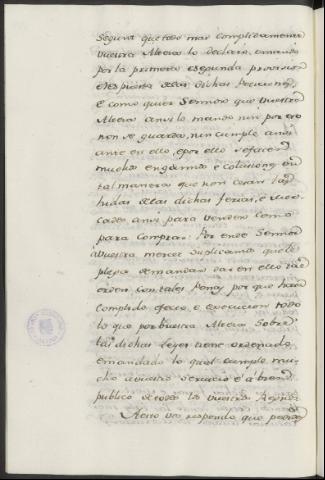 Segunt que todo mas complidamente
vuestra Alteza lo declaró, e mandó
por la primera e segunda provision
e respuesta de las dichas Peticiones,
e como quier Sennor que vuestra
Alteza ansi lo mandó nin por eso
non se guarda, nin cumple ansi
ante en ello, e por ello se facen
muchos engannos e colusiones en
tal manera que non cesan las
huidas de las dichas ferias, e mer-
cados ansi para vender como
para comprar: Por ende Sennor
a vuestra merced suplicamos que le
plega de mandar dar en ello tal
orden con tales Penas por que haya
complido efeto, e execucion todo
lo que por vuestra Alteza sobre
las dichas Leyes tiene ordenado,
e mandado lo qual cumple mu-
cho a vuestro servicio e á bien
publico de todos los vuestros Reynos
A esto vos respondo que pedides